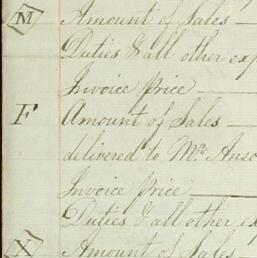 M Amount of Sales
Duties & all other exp
Invoice Price
F Amount of Sales
delivered to Mr. Anso
Invoice Price
Duties & all other ex
X Amount of Sales